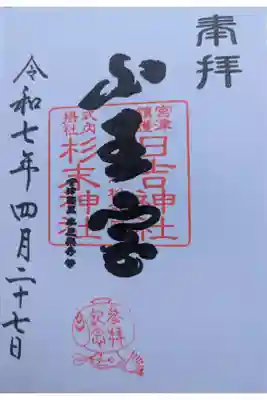 奉拝
宮津
鎮護
日吉神社
山王宮
式内
摂社
杉末神社
令和七年四月二十七日
参拝
記念